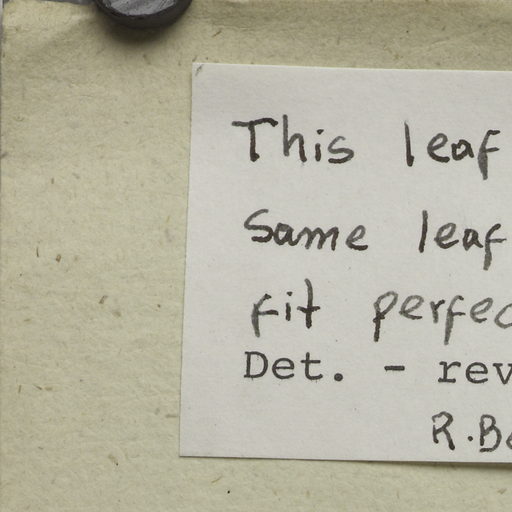 This leaf
Same leaf
fit perfec
Det. - rev
R. Be